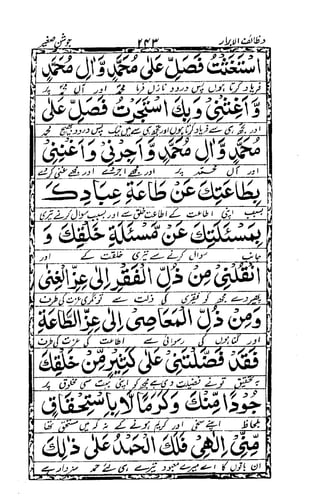 وظائف الابرار ۲۴۳ جوشن صغیر
اسْتَغَثْتُ فَصَلِّ عَلٰى مُحَمَّدٍ وَّاٰلِ مُحَمَّدٍ
فریاد کرتا ہوں پس درود نازل فرما محمد اور آل محمد پر
وَّاَغِثْنِیْ وَبِكَ اسْتَجَرْتُ فَصَلِّ عَلٰى
مُحَمَّدٍ وَّاٰلِ مُحَمَّدٍ وَّاَجِرْنِیْ وَاَغْنِنِیْ
اور آل محمد پر اور مجھے
بِطَاعَتِكَ عَنْ طَاعَةِ عِبَادِكَ
بسبب اپنی اطاعت کے اطاعت خلق سے اور بسبب سوال کرنے تیری
بِمَسْئَلَتِكَ عَنْ مَّسْئَلَةِ خَلْقِكَ وَ
جانب سوال کرنے سے تیری خلقت کے اور
انْقُلْنِیْ مِنْ ذُلِّ الْفَقْرِ اِلٰى عِزِّ الْغِنٰى
پھیر دے مجھ کو فقیری کی ذلت سے تونگری کی عزت کی طرف
وَمِنْ ذُلِّ الْمَعَاصِیْ اِلٰى عِزِّ الطَّاعَةِ
اور گناہوں کی رسوائی سے اطاعت کی عزت کی طرف
فَقَدْ فَضَّلْتَنِیْ عَلٰى كَثِيْرٍ مِّنْ خَلْقِكَ
بہ تحقیق تو نے فضیلت دی ہے مجھ کو اپنی بہت سی مخلوق پر
جُوْدًا مِّنْكَ وَكَرَمًا لَّا بِاسْتِحْقَاقٍ
بلحاظ اپنے سخی اور کریم ہونے کے نہ کہ میں مستحق تھا
مِّنِّیْ اِلٰهِیْ فَلَكَ الْحَمْدُ عَلٰى ذٰلِكَ
ان باتوں کا اے میرے معبود تیرے ہی لئے حمد سزاوار ہے